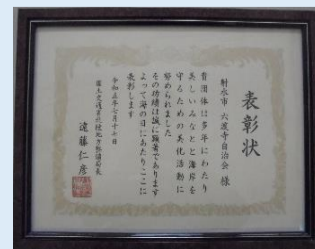 表彰状
射水市 六渡寺自治会 様
貴団体は多年にわたり
美しいみなとと海岸を
守るための美化活動に
努められました
その功績は誠に顕著であります
よって海の日にあたりここに
表彰します
令和五年七月十七日
国土交通省北陸地方整備局長
遠藤仁彦